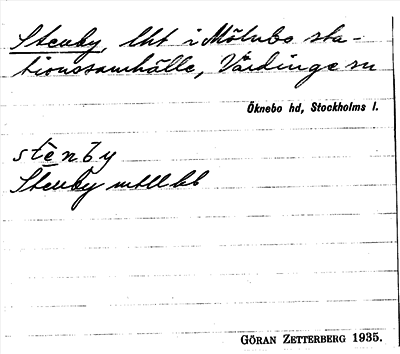 Stenby, lht i Mölnbo sta-
tionssamhälle, Vårdinge sn
Öknebo hd, Stockholms l.
stènby
Stenby
GÖRAN ZETTERBERG 1935.